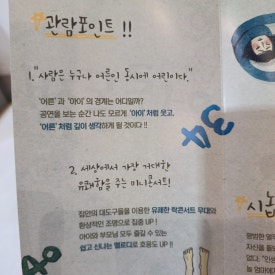 관람포인트 !!
1. "사람은 누구나 어른인 동시에 어린이다."
'어른'과 '아이'의 경계는 어디일까?
공연을 보는 순간 나도 모르게 '아이'처럼 웃고,
'어른'처럼 깊이 생각하게 될 것이다!!
34
2. 세상에서 가장 거대한
유쾌함을 주는 미니콘서트!
집안의 대도구들을 이용한 유쾌한 락콘서트 무대와
환상적인 조명으로 집중 UP!
아이와 부모님 모두 즐길 수 있는
쉽고 신나는 멜로디로 호응도 UP!!
40
시놉
평범한
자신을
없다.
늘
엄마